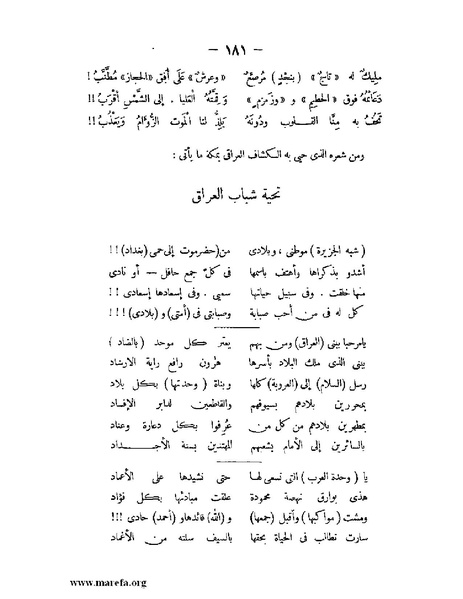 — ١٨١ —
مليكٌ له « تاجٌ » ( بنجدٍ ) مرصعٌ « وعرشٌ » عَلَى أُفقِ «الحجاز» مُطَنَّبُ !
دَعَائمُهُ فوق «الحطيم» و «وزمزمٍ» وَ قِمَّتُهُ العليا . إلى الشَّمْسِ أقْرَبُ !!
تَحُفُّ به مِنَّا القلوب ودُونَهُ يَلِذُّ لنا الموت الزُّؤامُ وَيَعْذُبُ !!
ومن شعره الذى حيى به الكشاف العراقى بمكة ما يأتى :
تحية شباب العراق
( شبه الجزيرة ) موطنى ، وبلادى من (حضرموت إلى حمى (بغداد) !!
أشدو بذكراها وأهتف باسمها فى كلّ جمع حافل — أو نادى
منها خلقت . وفى سبيل حياتها سعيى . وفى إسعادها إسعادى !!
كل له فى من أحب صبابة وصبابتى فى (أمتى) و (بلادى) !!!
يامرحبا ببنى (العراق) ومن بهم يعتز كل موحد ( بالضاد )
ببنى الذى ملك البلاد بأسرها هٰرون رافع راية الارشاد
رسل (السلام) إلى (العروبة) كلها وبناة ( وحدتها ) بكل بلاد
بمحررين بلادهم بسيوفهم والقاطعين لدابر الإفساد
بمطهرين بلادهم من كل من عُرفوا بكل دعارة وعناد
بالسائرين إلى الأمام بشعبهم المهتدين بسنة الأجـداد
يا ( وحدة العرب ) التى نسعى لها حتى نشيدها على الأعماد
هذى بوارق نهضة محمودة علقت مبادئها بكل فؤاد
ومشت (مواكبها) وأقبل (جمعها) و (الله) قائدها و (أحمد) حادى !!!
سارت تطالب فى الحياة بحقها بالسيف سلته من الأغماد
www.marefa.org